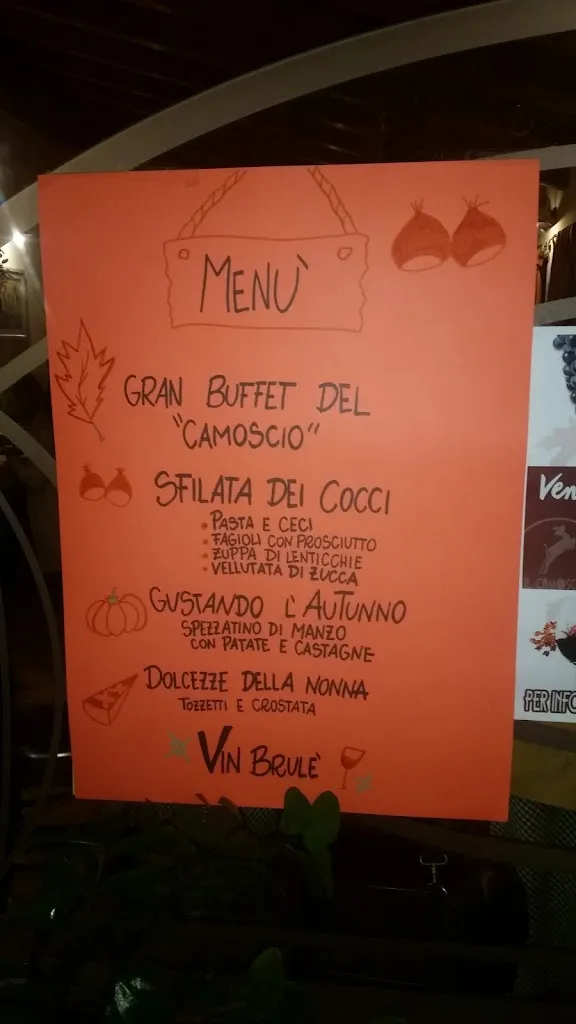 MENU'
GRAN BUFFET DEL
"CAMOSCIO"
SFILATA DEI COCCI
• PASTA E CECI
• FAGIOLI CON PROSCIUTTO
• ZUPPA DI LENTICCHIE
• VELLUTATA DI ZUCCA
GUSTANDO L'AUTUNNO
SPEZZATINO DI MANZO
CON PATATE E CASTAGNE
DOLCEZZE DELLA NONNA
TOZZETTI E CROSTATA
VIN BRULE'
Ven
PER INFO